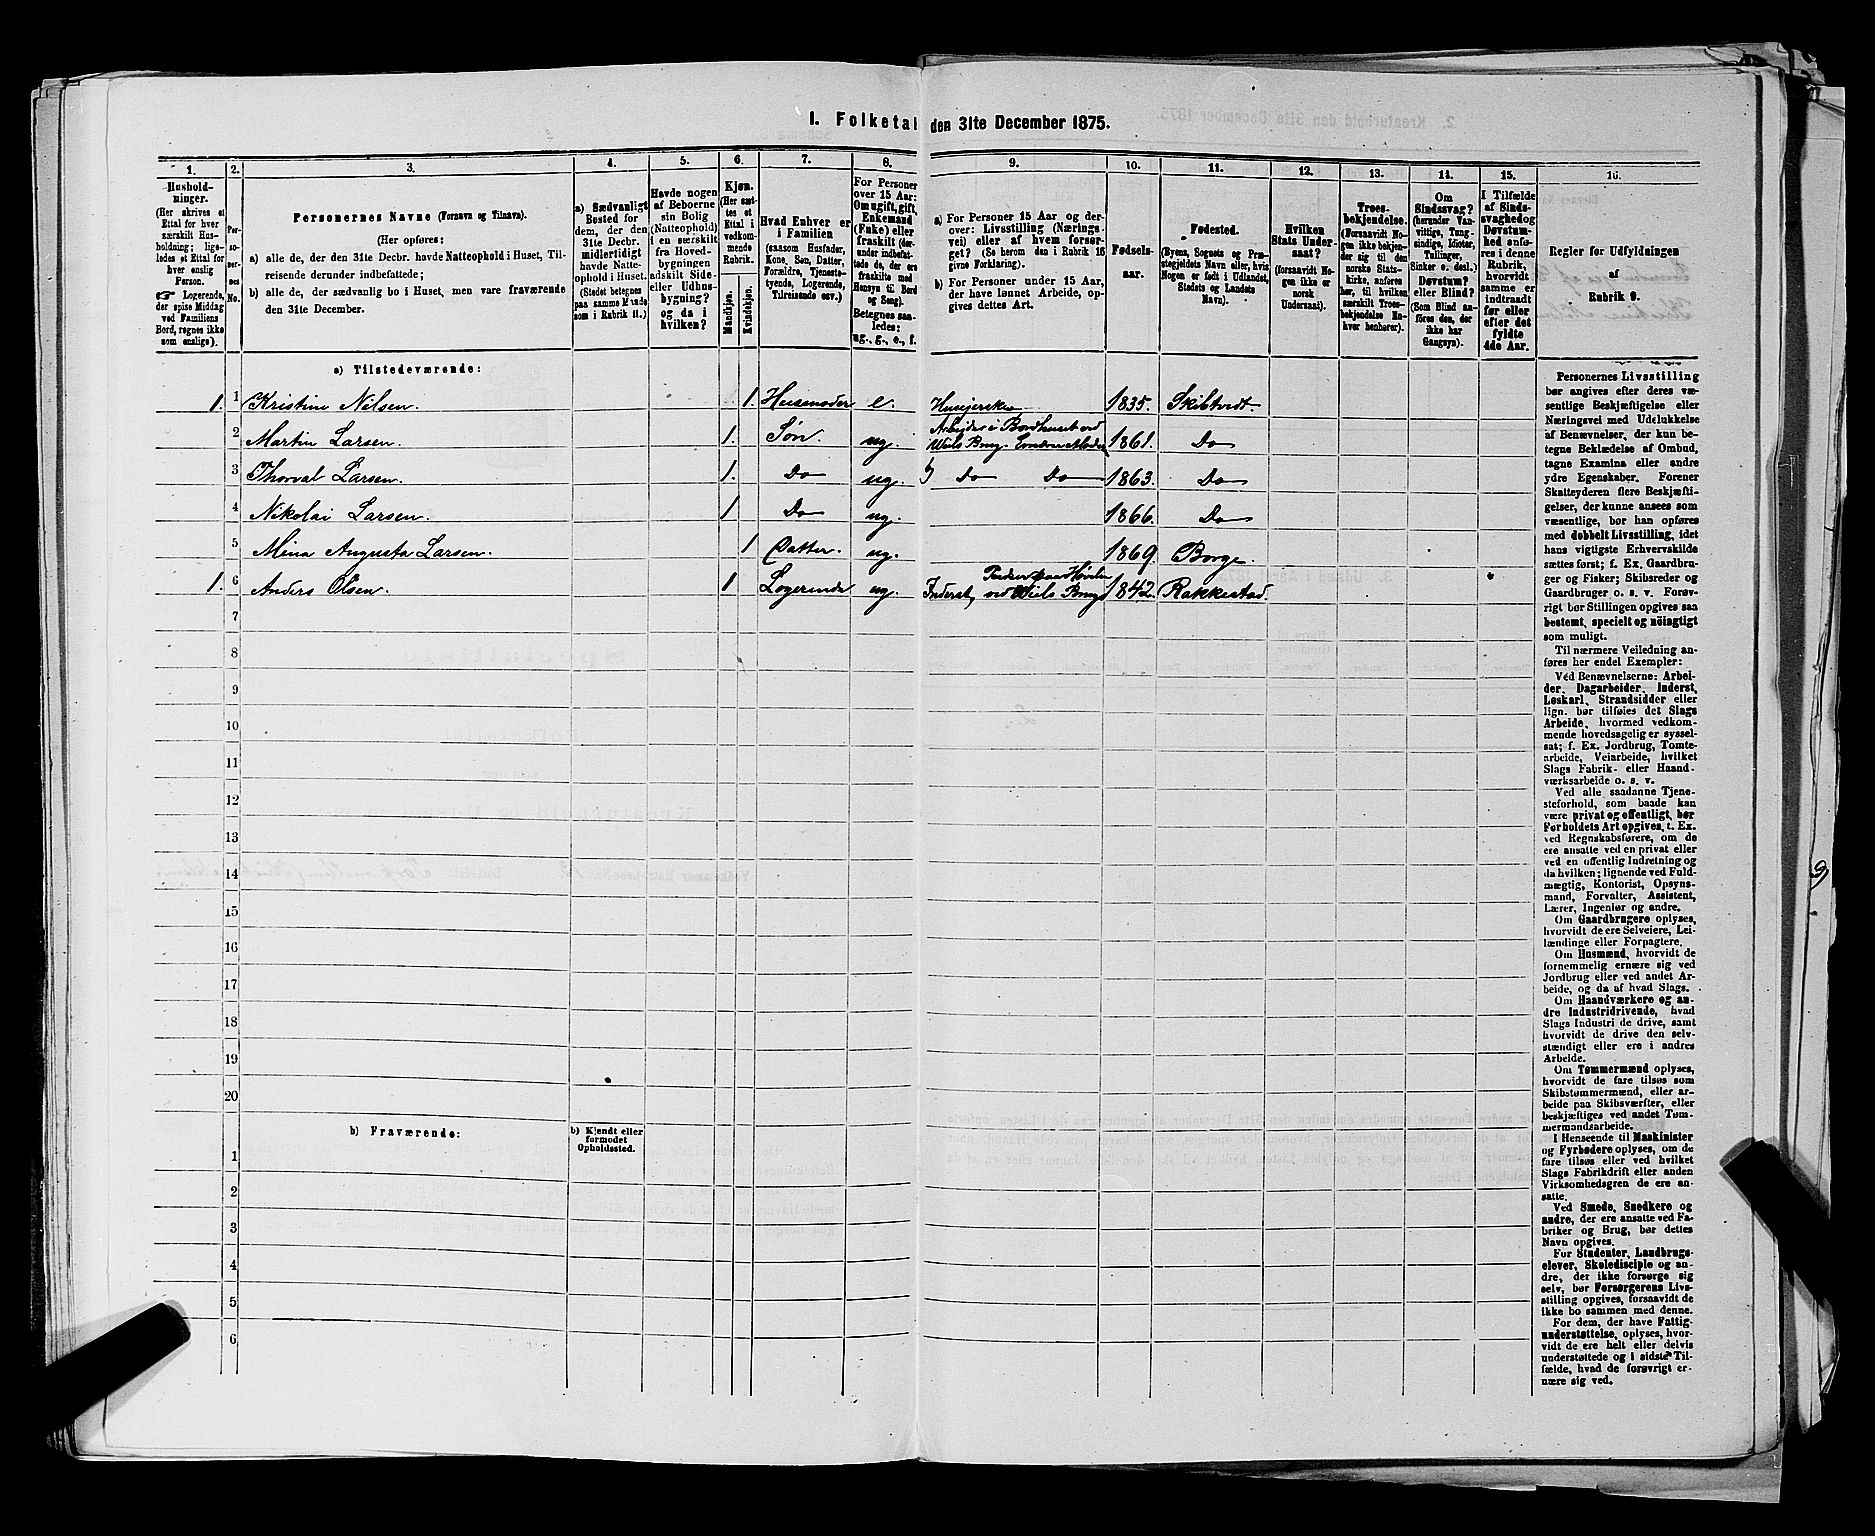 I. Folketal den 31te December 1875.
1. 2. 3. 4. 5. 6. 7. 8. 9. 10. 11. 12. 13. 14. 15. 16.
Hushold-
ninger.
(Her skrives et
Ettal for hver
særskilt Hus-
holdning; lige-
ledes et Ettal for
hver enslig
Person.
☞ Logerende,
der spise Middag
ved Familiens
Bord, regnes ikke
som enslige).
Per-
so-
ner-
nes
No.
Personernes Navne (Fornavn og Tilnavn).
(Her opføres:
a) alle de, der den 31te Decbr. havde Natteophold i Huset, Til-
reisende derunder indbefattede;
b) alle de, der sædvanlig bo i Huset, men vare fraværende
den 31te December.
a) Sædvanligt
Bosted for
dem, der den
31te Decbr.
midlertidigt
havde Natte-
ophold i Huset.
(Stedet betegnes
paa samme Maade
som i Rubrik 11.)
Havde nogen
af Beboerne
sin Bolig
(Natteophold)
i en særskilt
fra Hoved-
bygningen
adskilt Side-
eller Udhus-
bygning?
og da i
hvilken?
Kjøn.
(Her sæt-
tes et
Ettal i
vedkom-
mende
Rubrik.
Mandkjøn.
Kvindekjøn.
Hvad Enhver er
i Familien
(saasom Husfader,
Kone, Søn, Datter,
Forældre, Tjeneste-
tyende, Logerende,
Tilreisende osv.)
For Personer
over 15 Aar:
Om ugift, gift,
Enkemand
(Enke) eller
fraskilt (der-
under indbefat-
tede de, der ere
fraskilte med
Hensyn til Bord
og Seng).
Betegnes saa-
ledes:
ug., g., e., f.
a) For Personer 15 Aar og der-
over: Livsstilling (Nærings-
vei) eller af hvem forsør-
get? (Se herom den i Rubrik 16
givne Forklaring).
b) For Personer under 15 Aar,
der have lønnet Arbeide, op-
gives dettes Art.
Fødsels-
aar.
Fødested.
(Byens, Sognets og Præ-
stegjeldets Navn eller, hvis
Nogen er født i Udlandet,
Stedets og Landets
Navn).
Hvilken
Stats Under-
saat?
(forsaavidt No-
gen ikke er
norsk
Undersaat).
Troes-
bekjendelse.
(Forsaavidt No-
gen ikke bekjen-
der sig til den
norske Stats-
kirke, anføres
her, til hvilken
særskilt Troes-
bekjendelse En-
hver henhører).
Om
Sindssvag?
(herunder Van-
vittige, Tung-
sindige, Idioter,
Tullinger,
Sinker o. desl.)
Døvstum?
eller Blind?
(Som Blind an-
føres den, der
ikke har
Gangsyn).
I Tilfælde
af Sinds-
svaghed og
Døvstum-
hed anfø-
res i denne
Rubrik,
hvorvidt
samme er
indtraadt
før eller
efter det
fyldte
4de Aar.
Regler for Udfyldningen
af
Rubrik 9.
a) Tilstedeværende:
1. 1 Kristine Nilsen. 1. Husmoder e. Huseierske 1835. Skibtvedt.
2 Martin Larsen. 1. Søn. ug. Arbeider i Bordhuset ved
Wiels Brug 1861. Do
3 Thorval Larsen. 1. Do ug. Do Do 1863. Do
4 Nikolai Larsen. 1 Do ug. 1866. Do
5 Mina Augusta Larsen. 1 Datter. ug. 1869. Borge.
1. 6 Anders Olsen. 1 Logerende ug. Inderst, ved Wiels Brug 1842. Rakkestad.
7
8
9
10
11
12
13
14
15
16
17
18
19
20
b) Fraværende:
b) Kjendt eller
formodet
Opholdssted.
1
2
3
4
5
6
Personernes Livsstilling
bør angives efter deres væ-
sentlige Beskjæftigelse eller
Næringsvei med Udelukkelse
af Benævnelser, der kun be-
tegne Beklædelse af Ombud,
tagne Examina eller andre
ydre Egenskaber. Forener
Skatteyderen flere Beskjæfti-
gelser, der kunne ansees som
væsentlige, bør han opføres
med dobbelt Livsstilling, idet
hans vigtigste Erhvervskilde
sættes først; f. Ex. Gaardbru-
ger og Fisker; Skibsreder og
Gaardbruger o. s. v. Forøv-
rigt bør Stillingen opgives saa
bestemt, specielt og nöiagtigt
som muligt.
Til nærmere Veiledning an-
føres her endel Exempler:
Ved Benævnelserne: Arbei-
der, Dagarbeider, Inderst,
Løskarl, Strandsidder eller
lign. bør tilføies det Slags
Arbeide, hvormed vedkom-
mende hovedsagelig er syssel-
sat; f. Ex. Jordbrug, Tomte-
arbeide, Veiarbeide, hvilket
Slags Fabrik- eller Haand-
værksarbeide o. s. v.
Ved alle saadanne Tjene-
steforhold, som baade kan
være privat og offentligt, bør
Forholdets Art opgives, t. Ex.
ved Regnskabsførere, om de
ere ansatte ved en privat eller
ved en offentlig Indretning og
da hvilken; lignende ved Fuld-
mægtig, Kontorist, Opsyns-
mand, Forvalter, Assistent,
Lærer, Ingeniør og andre.
Om Gaardbrugere oplyses,
hvorvidt de ere Selveiere, Lei-
lændinge eller Forpagtere.
Om Husmænd, hvorvidt de
fornemmelig ernære sig ved
Jordbrug eller ved andet Ar-
beide, og da af hvad Slags.
Om Haandværkere og an-
dre Industridrivende, hvad
Slags Industri de drive, samt
hvorvidt de drive den selv-
stændigt eller ere i andres
Arbeide.
Om Tømmermænd oplyses,
hvorvidt de fare tilsøs som
Skibstømmermænd, eller ar-
beide paa Skibsværfter, eller
beskjæftiges ved andet Tøm-
mermandsarbeide.
I Henseende til Maskinister
og Fyrbødere oplyses, om de
fare tilsøs eller ved hvilket
Slags Fabrikdrift eller anden
Virksomhedsgren de ere an-
satte.
Ved Smede, Snedkere og
andre, der ere ansatte ved Fa-
briker og Brug, bør dettes
Navn opgives.
For Studenter, Landbrugs-
elever, Skoledisciple og an-
dre, der ikke forsørge sig
selv, bør Forsørgerens Livs-
stilling opgives, forsaavidt de
ikke bo sammen med denne.
For dem, der have Fattig-
understøttelse, oplyses, hvor-
vidt de ere helt eller delvis
understøttede og i sidste Til-
fælde, hvad de forøvrigt er-
nære sig ved.